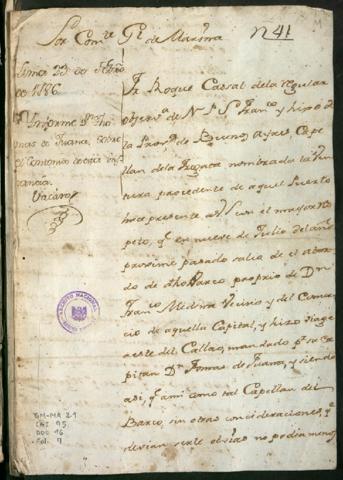 Sor Comte Gl de Marina
N 41
Lima 23 de
de 1786
Informe Dn Tho
mas de Juana, sobre
el contenido de esta ins
tancia.
Vacaro
Fr Roque Casal de la regular
observa de N. P. Sn Franco, y hijo de
la Prova de Buenos Ayres, Cape
llan de la Fragata nombrada la
procedente de aquel Puerto
hace presente a VS. con el mayor res
peto, qe en nueve de Julio del año
proximo pasado salio de el abor
do de dho Barco proprio de Dn
Franco Medina Vecino y del Comer
cio de aquella Capital, y hizo viage
a este del Callao, mandado pr su Ca
pitan Dn Tomas de Juana, y siendo
asi qe a mi como tal Capellan del
Barco, sin otras consideraciones, qe
devian serle obvias no podia menos
ARCHIVO NACIONAL
GM-MA 21
CAJ 95
DOC 16
Fol. 7